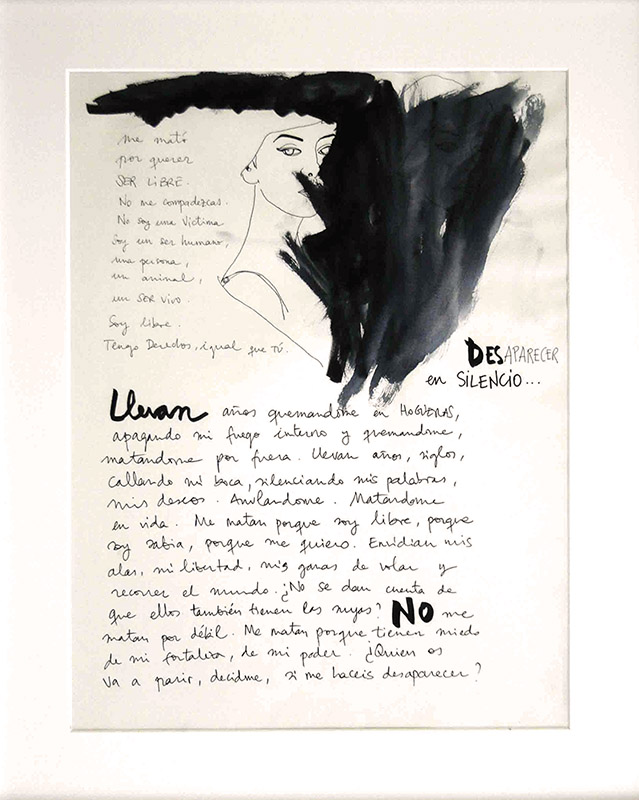 me mató
por querer
SER LIBRE.
No me compadezcas.
No soy una víctima
Soy un ser humano,
una persona,
un animal,
un SER VIVO.
Soy libre.
Tengo Derechos, igual que TÚ.
DESAPARECER
en SILENCIO...
Llevan años quemandome en HOGUERAS,
apagando mi fuego interno y quemandome,
matandome por fuera. Llevan años, siglos,
callando mi boca, silenciando mis palabras,
mis deseos. Anulandome. Matandome
en vida. Me matan porque soy libre, porque
soy sabia, porque me quiero. Envidian mis
alas, mi libertad, mis ganas de volar y
recorrer el mundo. ¿No se dan cuenta de
que ellos también tienen las suyas? NO me
matan por débil. Me matan porque tienen miedo
de mi fortaleza, de mi poder. ¿Quien os
va a parir, decidme, si me haceis desaparecer?